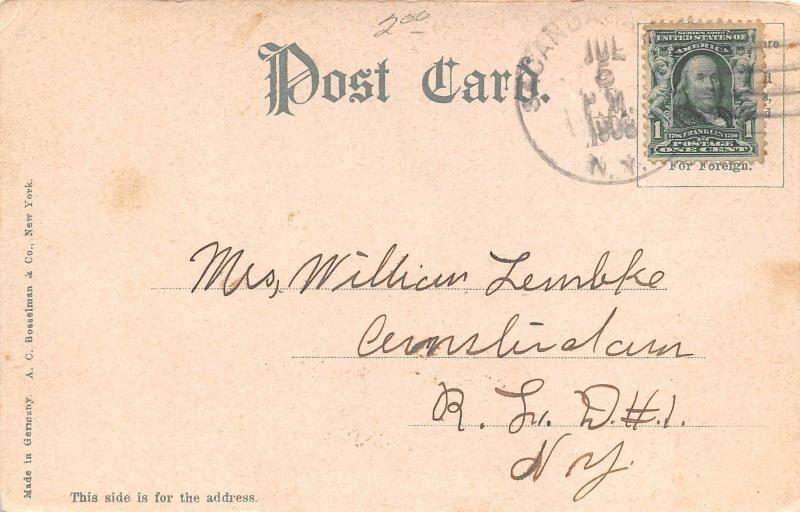 200
Post Card.
SACANDAGA
JUL
P.M.
1908
N.Y.
SERIES 1902
UNITED STATES OF
AMERICA
1706 FRANKLIN 1790
1 POSTAGE 1
ONE CENT
For Foreign.
Mrs, William Lembke
Amsterdam
R. F. D. #.1.
N Y.
This side is for the address.
Made in Germany. A. C. Bosselman & Co., New York.